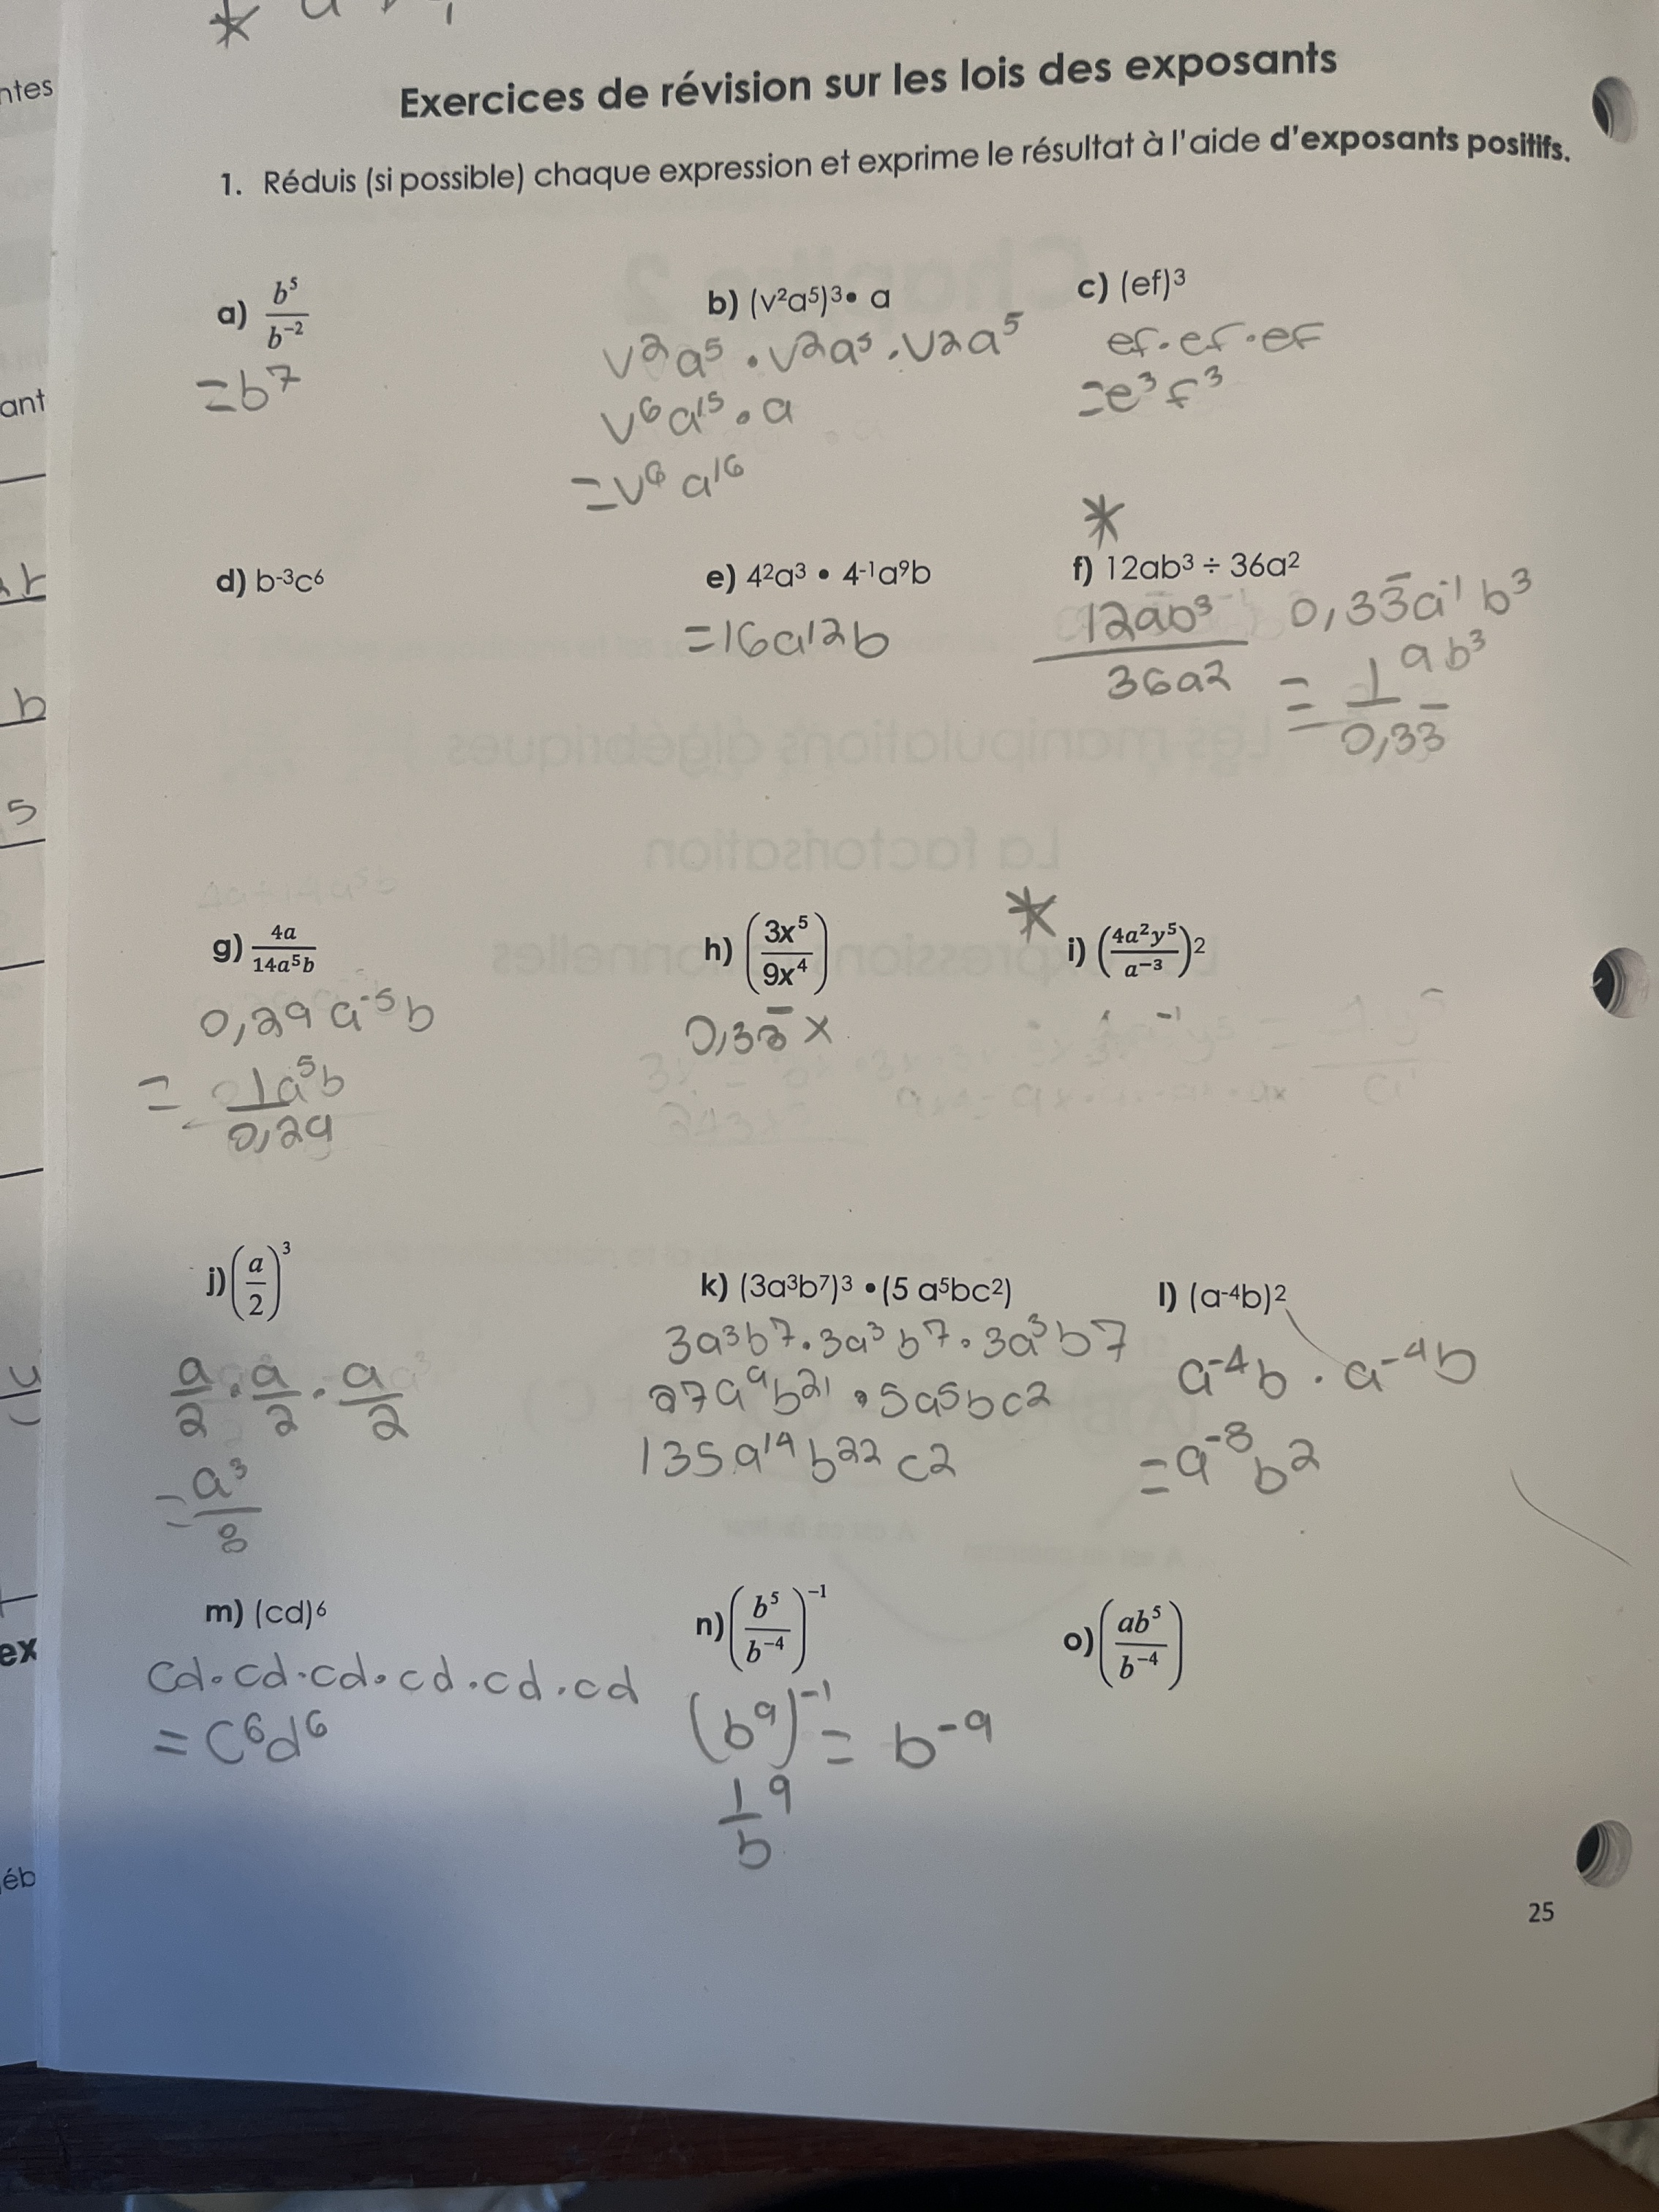 Exercices de révision sur les lois des exposants
1. Réduis (si possible) chaque expression et exprime le résultat à l'aide d'exposants positifs.
ntes
ant
b
5
ex
éb
a) b⁵/b⁻²
= b⁷
b) (v²a⁵)³• a
v²a⁵ • v²a⁵ • v2a⁵
v⁶a¹⁵ • a
= v⁶ a¹⁶
c) (ef)³
ef • ef • ef
= e³ f³
d) b⁻³c⁶
e) 4²a³ • 4⁻¹a⁹b
= 16a¹²b
*
f) 12ab³ ÷ 36a²
12ab³/36a2
0,33̅a⁻¹ b³
= 1/0,33̅ ab³
g) 4a/14a⁵b
0,29 a⁻⁵ b
= 1a⁵b/0,29
h) (3x⁵/9x⁴)
0,33̅ x
*
i) (4a²y⁵/a⁻³)²
j) (a/2)³
a/2 • a/2 • a/2
= a³/8
k) (3a³b⁷)³ • (5 a⁵bc²)
3a³b⁷ • 3a³ b⁷ • 3a³b7
27a⁹b²¹ • 5a⁵bc2
135a¹⁴b²²c2
l) (a⁻⁴b)²
a⁻⁴b • a⁻⁴b
= a⁻⁸b²
m) (cd)⁶
cd • cd • cd • cd • cd • cd
= c⁶d⁶
n) (b⁵/b⁻⁴)⁻¹
(b⁹)⁻¹ = b⁻⁹
1/b ⁹
o) (ab⁵/b⁻⁴)
25